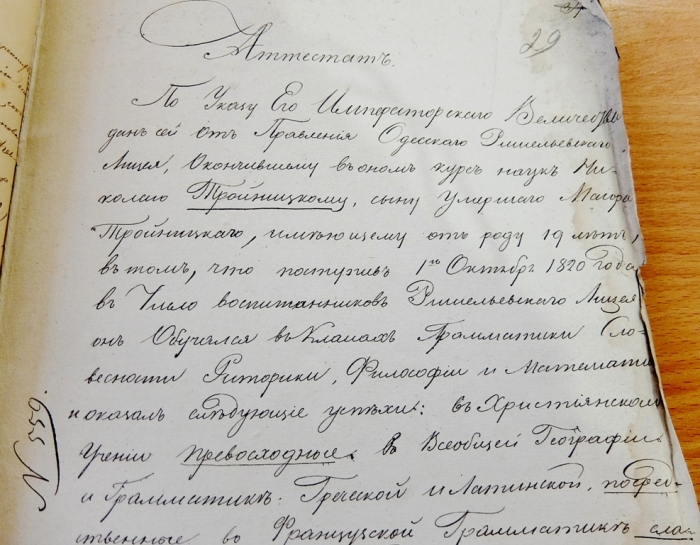 29
Аттестатъ.
По Указу Его Императорскаго Величества
данъ сей отъ Правленія Одесскаго Ришельевскаго
Лицея, Окончившему въ ономъ курсъ наукъ Ни-
колаю Тройницкому, сыну Умершаго Маіора
Тройницкаго, имѣющему отъ роду 19 лѣтъ,
въ томъ, что поступивъ 1го Октября 1820 года
въ Число воспитанниковъ Ришельевскаго Лицея
онъ Обучался въ Класахъ Грамматики Сло-
весности Риторики, Философіи и Математики
и оказалъ слѣдующіе успѣхи: въ Христіянскомъ
Ученіи превосходные. въ Всеобщей Географіи
и Грамматикѣ. Греческой и Латинской, посред-
ственные во Французской Грамматикѣ сла-
N 559